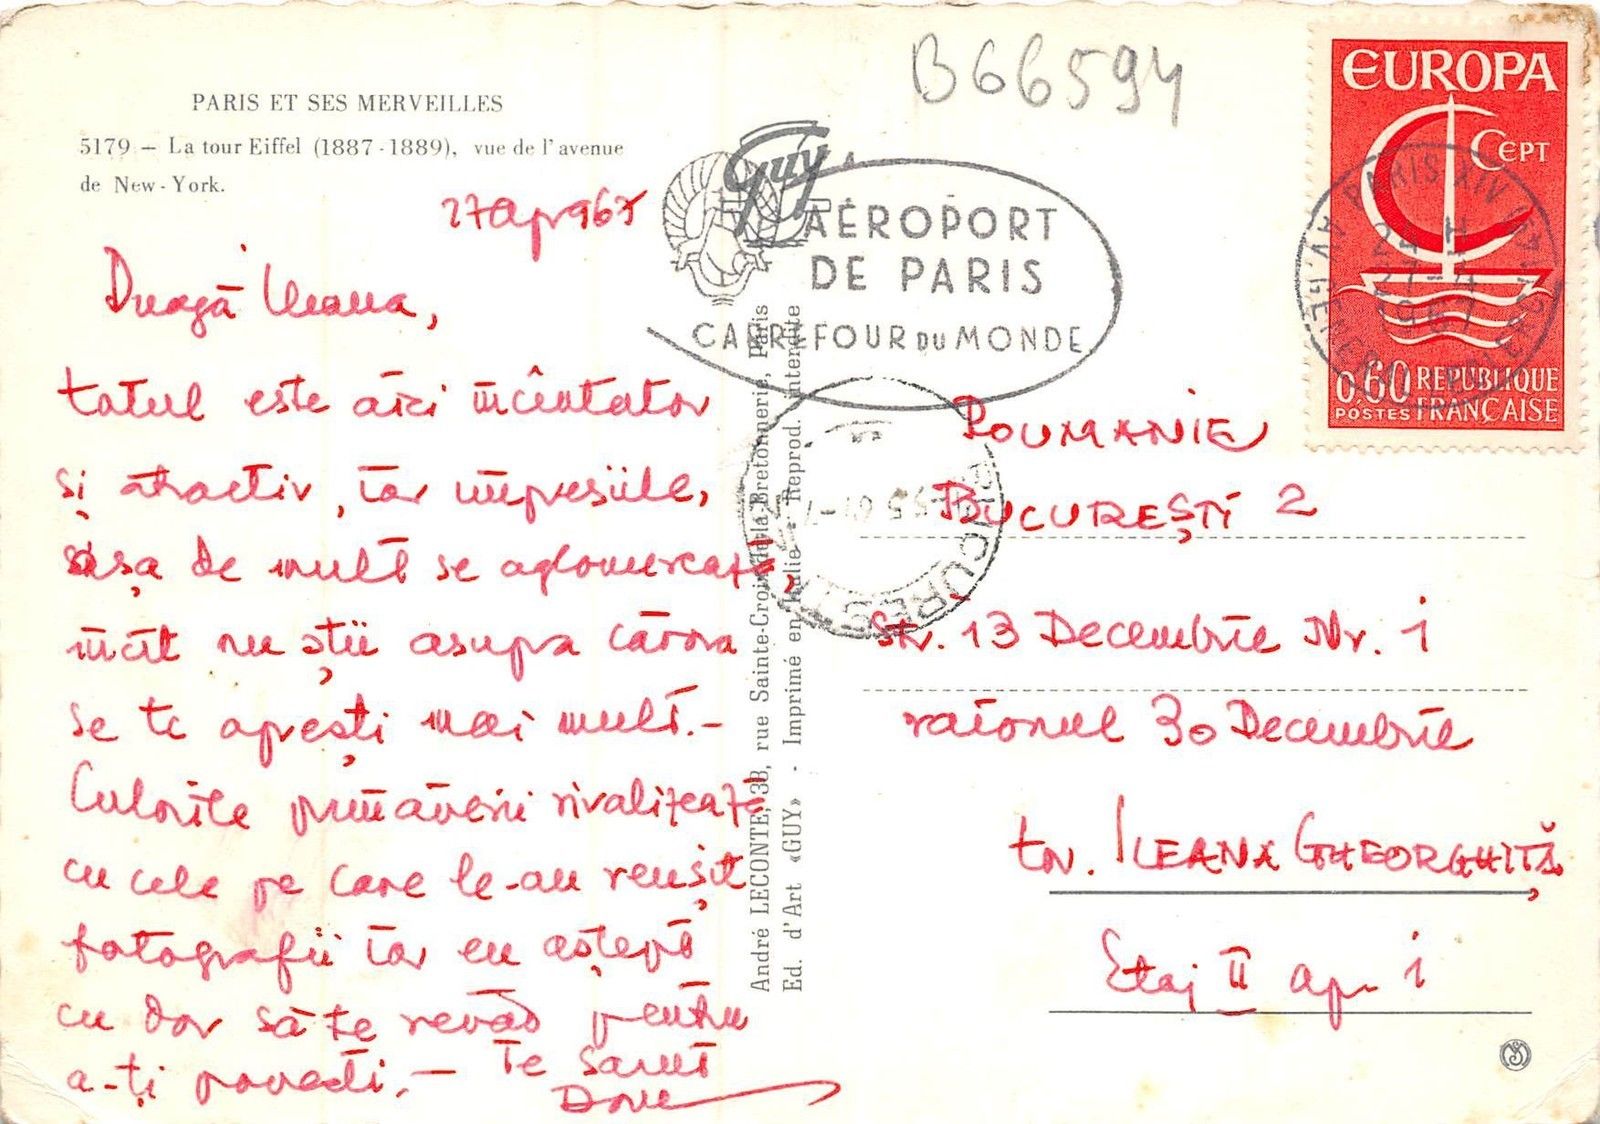 B66594
PARIS ET SES MERVEILLES
5179 – La tour Eiffel (1887-1889), vue de l'avenue
de New-York.
27 Apr 967
Dragă Ileana,
totul este aici încîntător
și atractiv, iar impresiile,
așa de mult se aglomerează,
încît nu știi asupra cărora
să te oprești mai mult.–
Culorile primăverii rivalizează
cu cele pe care le-au reușit
fotografii iar eu aștept
cu dor să te revăd pentru
a-ți povesti.– Te sărut
Guy
AÉROPORT
DE PARIS
CARREFOUR DU MONDE
EUROPA
CEPT
0,60 RÉPUBLIQUE
POSTES FRANÇAISE
PARIS XIV
24 H
27-4
1967
BUCUREȘTI
André LECONTE, 38, rue Sainte-Croix-de-la-Bretonnerie, Paris
Ed. d'Art «GUY» - Imprimé en Italie - Reprod. interdite
ROUMANIE
BUCUREȘTI 2
Str. 13 Decembrie Nr. 1
raionul 30 Decembrie
tov. ILEANA GHEORGHIȚĂ
Etaj II ap. 1